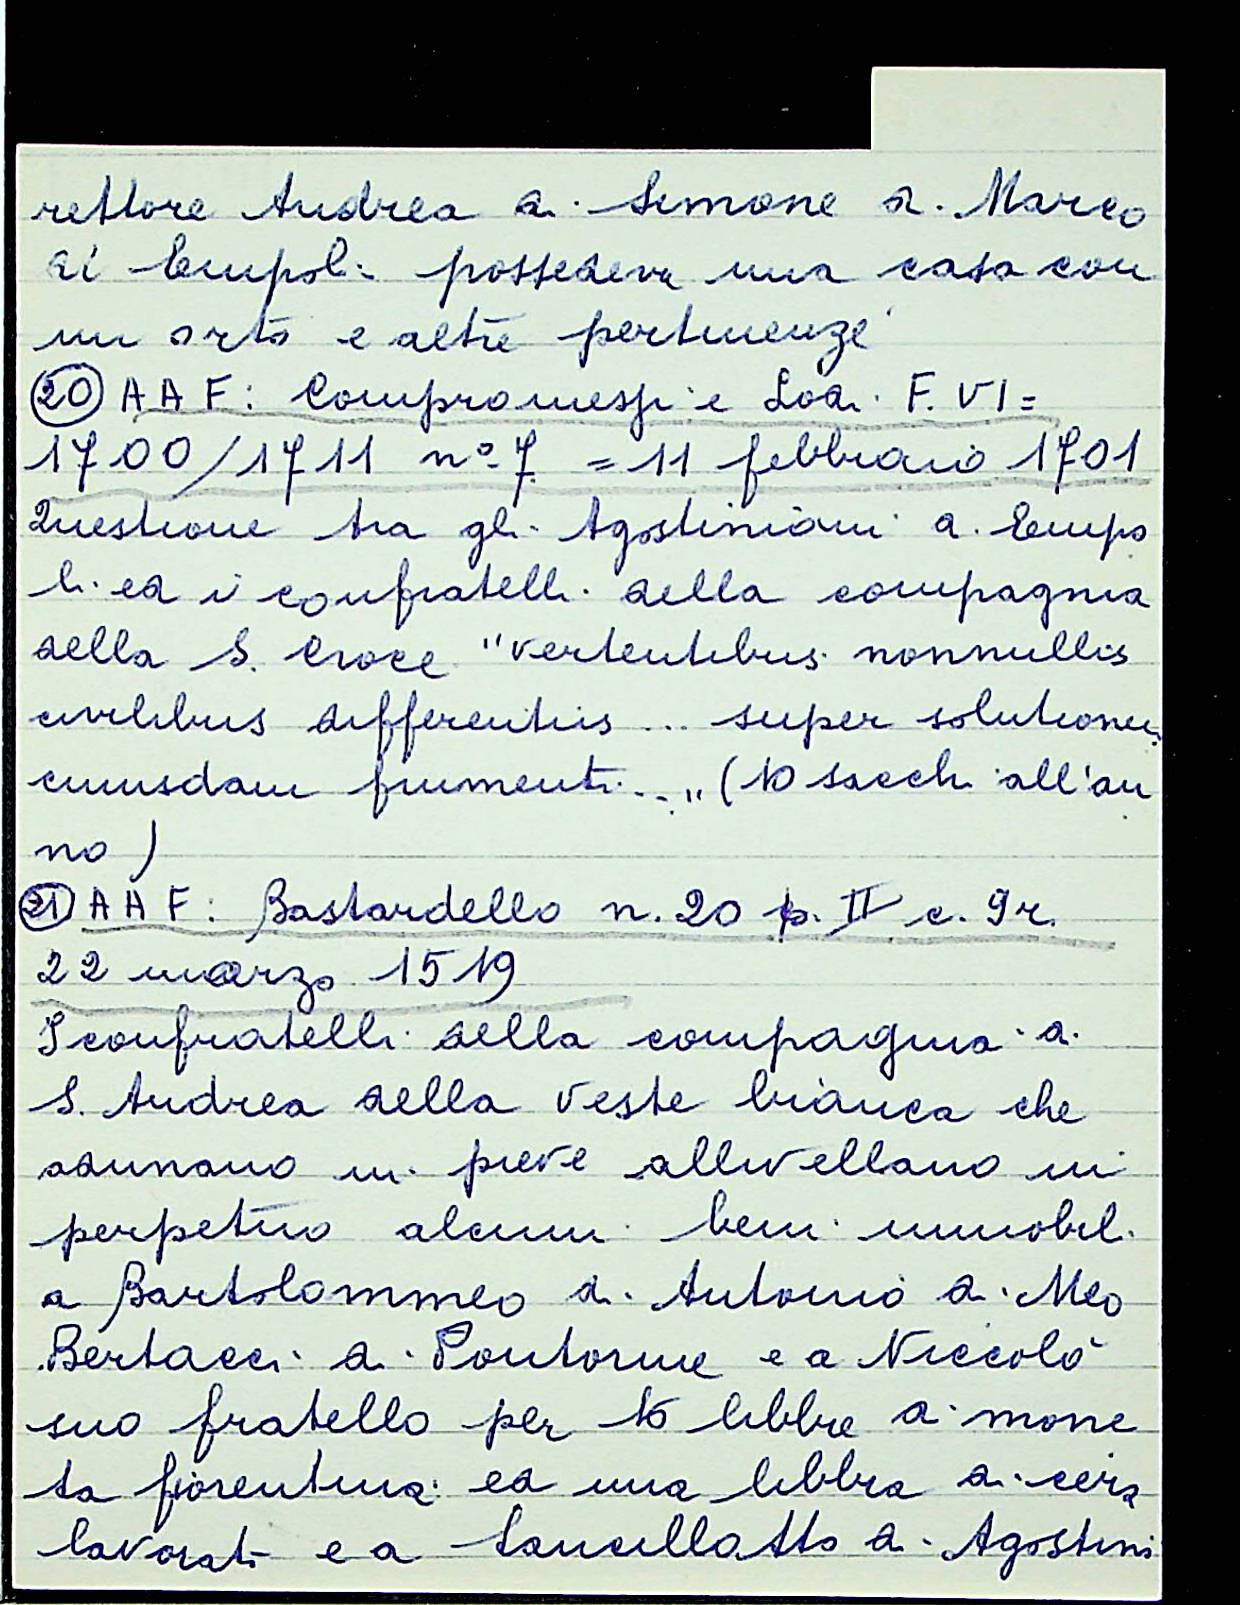 rettore Andrea di Simone di Marco
di Empoli possedeva una casa con
un orto e altre pertinenze
20 AAF: Compromessi e Lodi F. VI =
1700/1711 nº 7 = 11 febbraio 1701
Questione tra gli Agostiniani di Empo
li ed i confratelli della compagnia
della S. Croce "vertentibus nonnullis
civilibus differentiis ... super solutionem
cuiusdam frumenti ..." (10 sacchi all'an
no)
21 AAF: Bastardello n. 20 p. II c. 9r.
22 marzo 1519
I confratelli della compagnia di
S. Andrea della veste bianca che
adunano in pieve allivellano in
perpetuo alcuni beni immobili
a Bartolommeo di Antonio di Meo
Bertacci di Pontorme e a Niccolò
suo fratello per 16 libbre di mone
ta fiorentina ed una libbra di cera
lavorata e a di Agostini